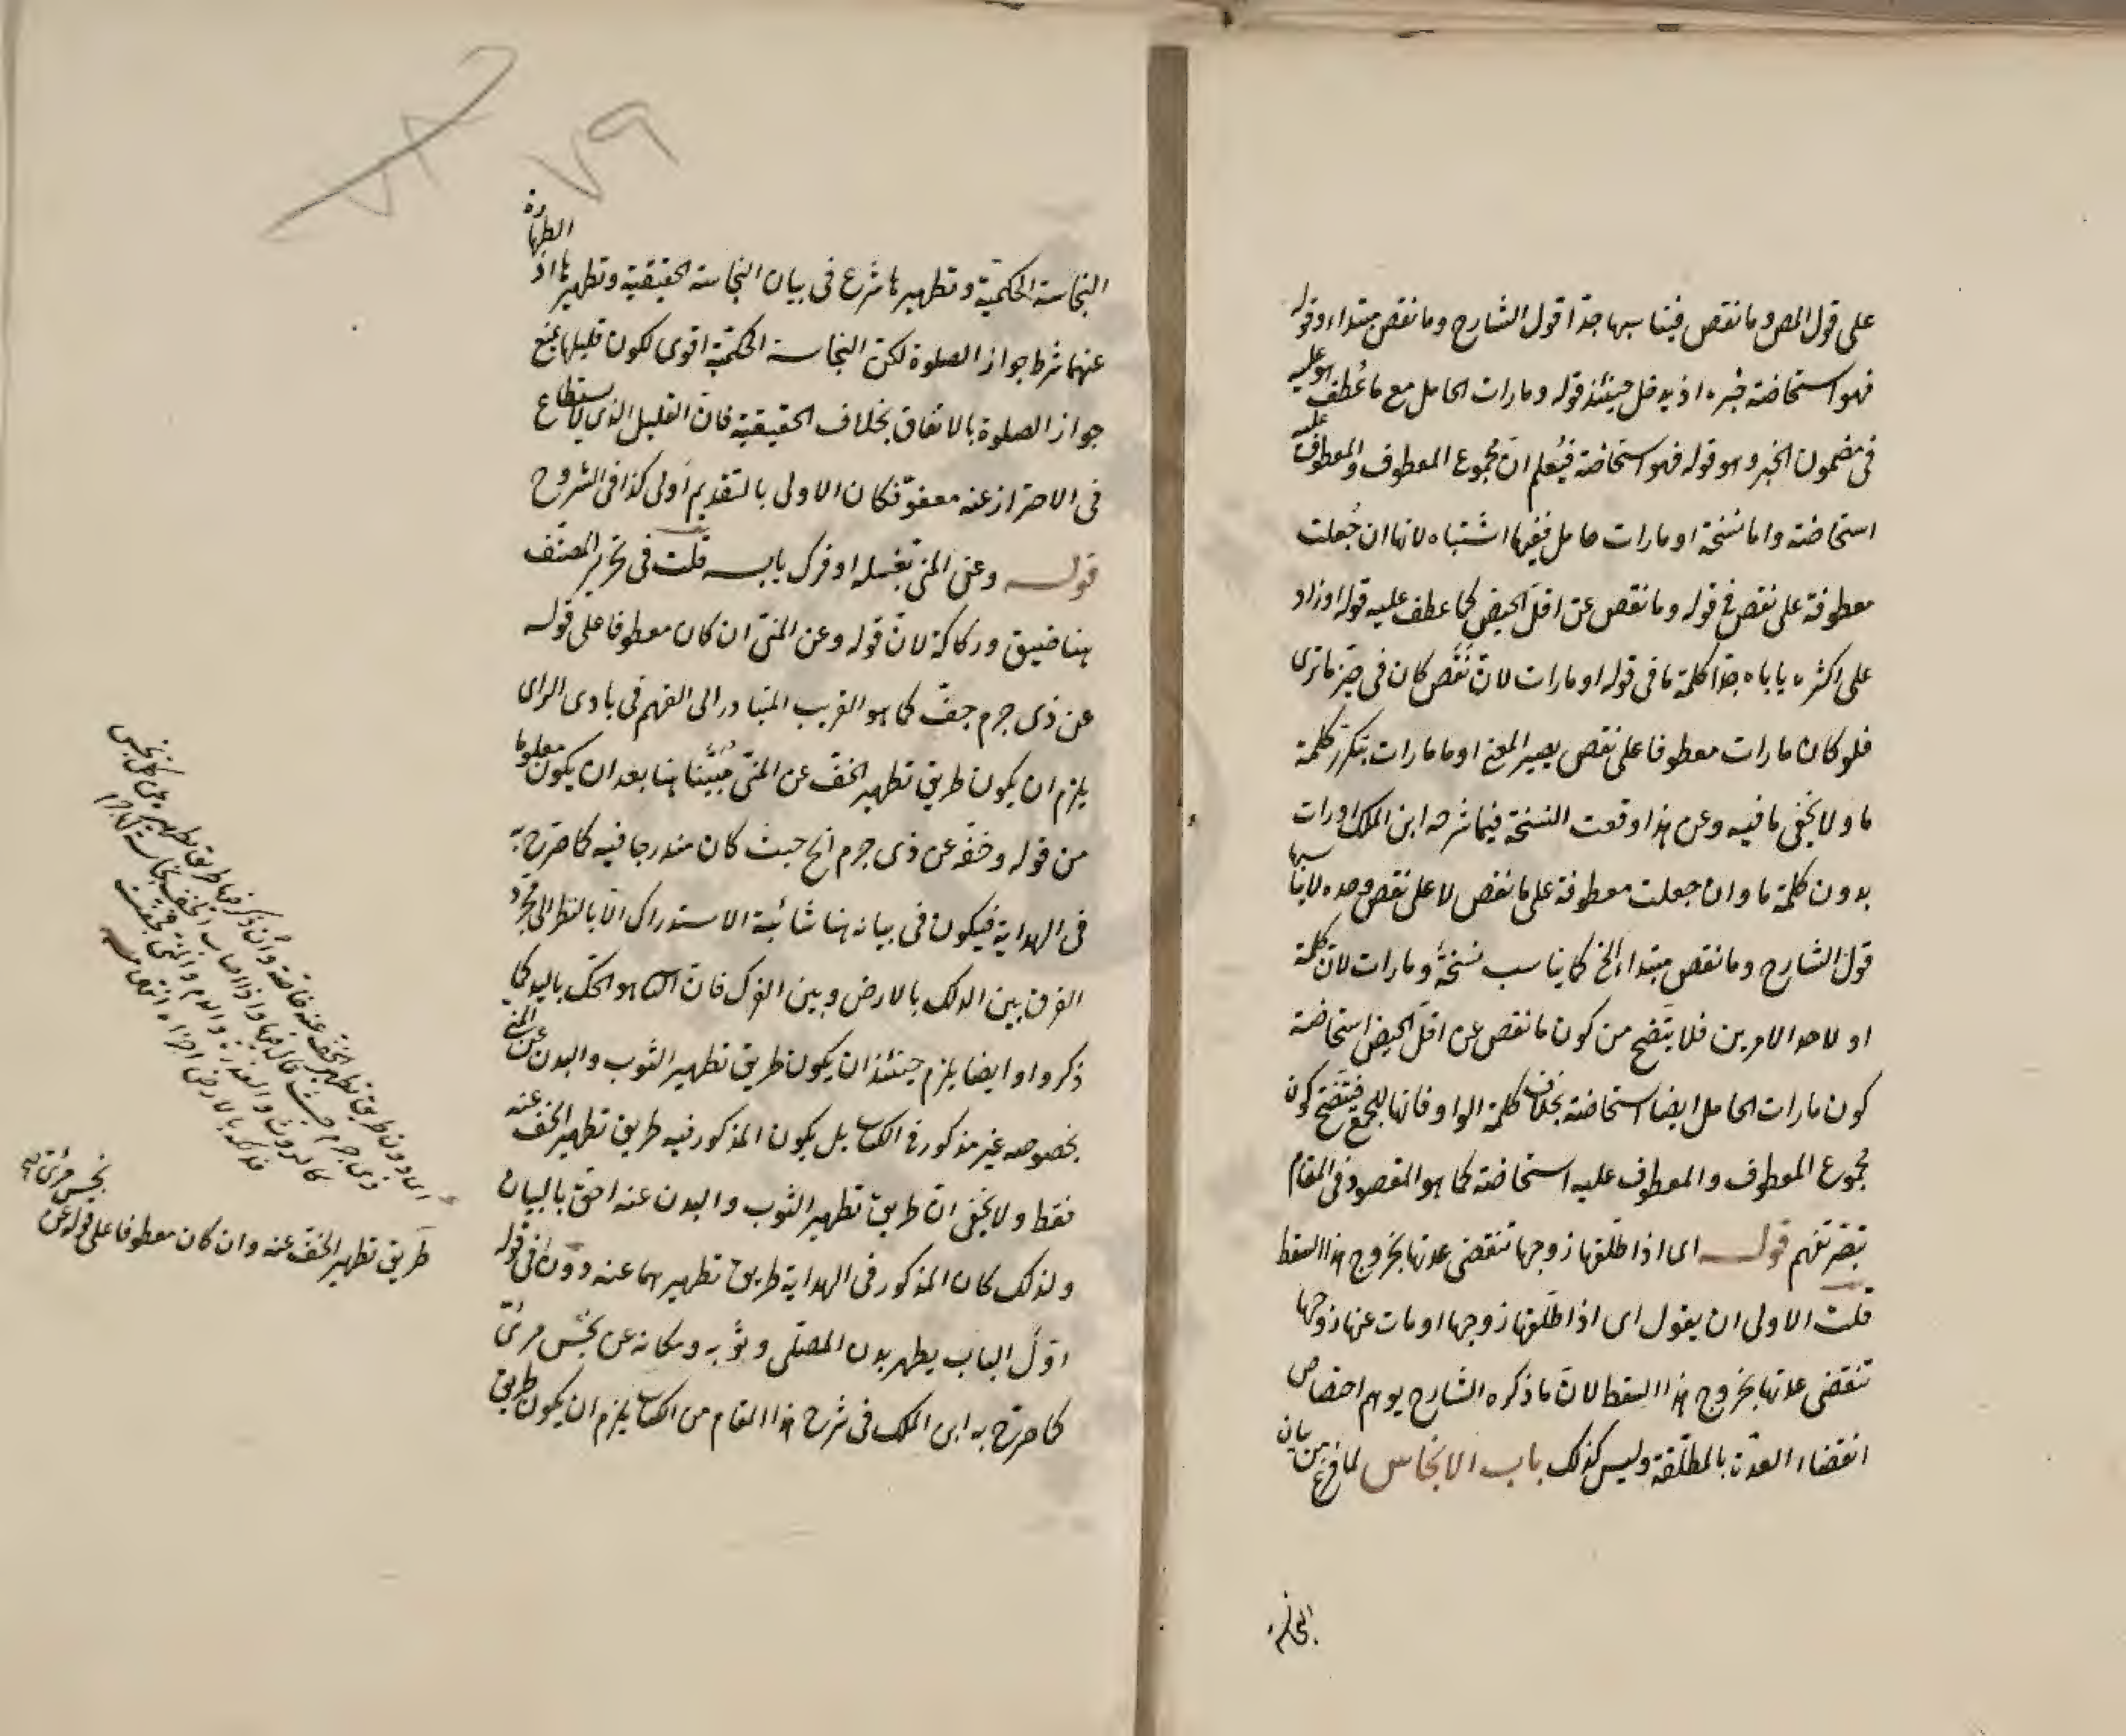 على قول المص وما نقص فيناسبها جدا قول الشارح وما نقص مبتداء وقوله
فهو استحاضة خبره اذ يدخل حينئذ قوله وما رات الحامل مع ما عُطف هو عليه
فى مضمون الخبر وهو قوله فهو استحاضة فيُعلم انّ مجموع المعطوف والمعطوف عليه
استحاضة واما نسخة او ما رات حامل ففيها اشتباه لانها ان جُعلت
معطوفة على نقص فى قوله وما نقص عن اقلّ الحيض كما عطف عليه قوله او زاد
على اكثره يأباه جدّا كلمة ما فى قوله او ما رات لانّ نقَص كان فى حيّز ما ترى
فلو كان ما رات معطوفا على نقص يصير المعنى او ما ما رات بتكرّر كلمة
ما ولا يخفى ما فيه وعن هذا وقعت النسخة فيما شرحه ابن الملك او رات
بدون كلمة ما وان جعلت معطوفة على ما نقص لا على نقص وحده لا يناسبها
قول الشارح وما نقص مبتداء الخ كما يناسب نسخة وما رات لانّ كلمة
او لاحد الامرين فلا يتّضح من كون ما نقص عن اقلّ الحيض استحاضة
كون ما رات الحامل ايضا استحاضة بخلاف كلمة الواو فانها للجمع فيتّضح كون
مجموع المعطوف والمعطوف عليه استحاضة كما هو المقصود فى المقام
تبصّر تفهم قوله اى اذا طلّقها زوجها تنقضى عدتها بخروج هذا السقط
قلت الاولى ان يقول اى اذا طلّقها زوجها او مات عنها زوجها
تنقضى عدتها بخروج هذا السقط لانّ ما ذكره الشارح يوهم اختصاص
انقضاء العدّة بالمطلّقة وليس كذلك باب الانجاس لما فرغ من بيان
النجاسة الحكميّة وتطهيرها شرع فى بيان النجاسة الحقيقية وتطهيرها اذ الطهارة
عنهما شرط جواز الصلوة لكن النجاسة الحكمية اقوى لكون قليلها يمنع
جواز الصلوة بالاتفاق بخلاف الحقيقية فانّ القليل الذى لا يستطاع
فى الاحتراز عنه معفوّ فكان الاولى بالتقديم اولى كذا فى الشروح
قوله وعن المنى بغسله او فرك يابسه قلت فى تحرير المصنّف
هنا ضيق وركاكة لانّ قوله وعن المنىّ ان كان معطوفا على قوله
عن ذى جرم جفّ كما هو القريب المتبادر الى الفهم فى بادى الراى
يلزم ان يكون طريق تطهير الخفّ عن المنىّ مُبيّنا هنا بعد ان يكون معلوما
من قوله وخفّه عن ذى جرم الخ حيث كان مندرجا فيه كما صرّح به
فى الهداية فيكون فى بيانه هنا شائبة الاستدراك الّا بالنظر الى مجرّد
الفرق بين الدلك بالارض وبين الفرك فانّ هو الحكّ باليد كما
ذكروا وايضا يلزم حينئذ ان يكون طريق تطهير الثوب والبدن عن المنى
بخصوصه غير مذكور فى الكتاب بل يكون المذكور فيه طريق تطهير الخفّ عنه
فقط ولا يخفى انّ طريق تطهير الثوب والبدن عنه احقّ بالبيان
ولذلك كان المذكور فى الهداية طريق تطهيرهما عنه دون فى قوله
اوّل الباب يطهر بدن المصلّى وثوبه ومكانه عن نجَس مرئىّ
كما صرّح به ابن الملك فى شرح هذا المقام من الكتاب يلزم ان يكون طريق
اى دون طريق تطهير الخفّ عنه خاصة وان ذكر
ذى جرم حيث قال فيها واذا اصاب الخفّ نجاسة لها جرم
كالروث والعذرة والدم والمنى فجفّت
فدلكه بالارض اجزاه انتهى منه
نجس مرئىّ
طريق تطهير الخفّ عنه وان كان معطوفا على قوله عن